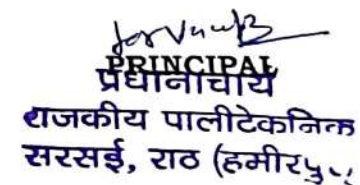 PRINCIPAL
प्रधानाचार्य
राजकीय पालीटेकनिक
सरसई, राठ (हमीरपु